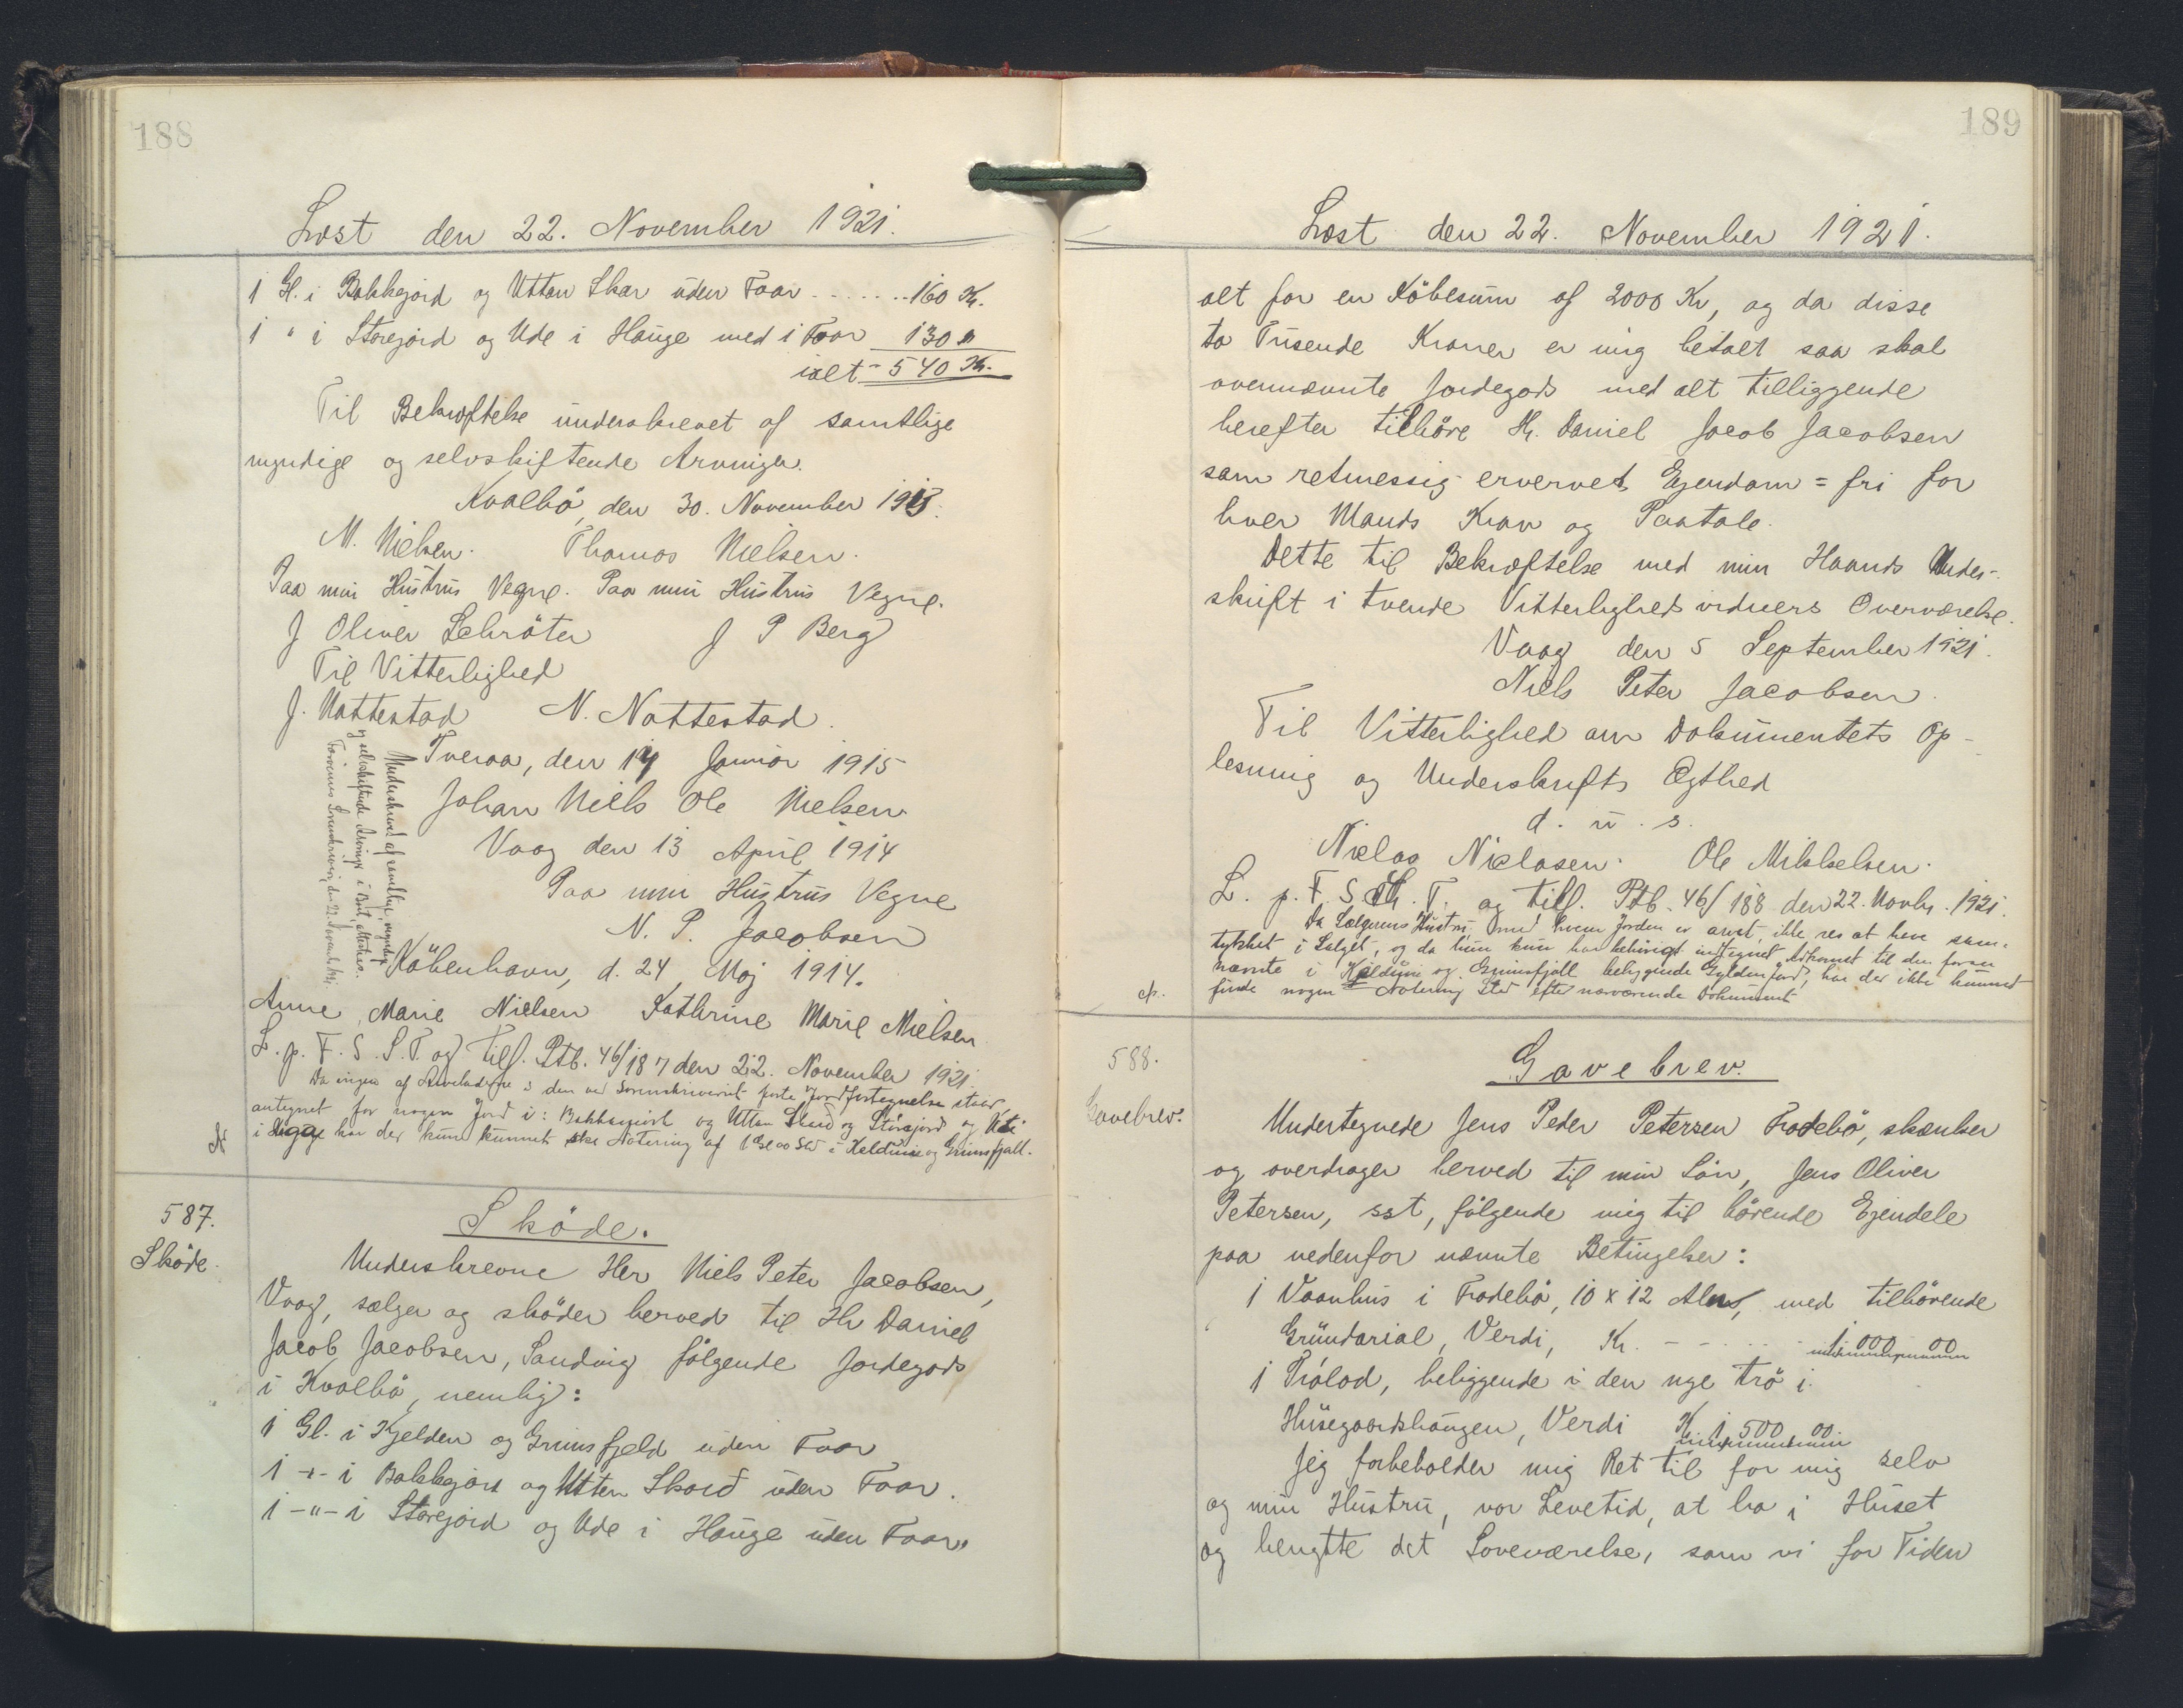 188
Læst den 22. November 1921.
1 Gl. i Bakkegjord og Uttan Skar uden Faar ...... 160 Kr.
1 " i Storejord og Ude i Hauge med i Faar 130 "
ialt - 540 Kr.
Til Bekræftelse underskrevet af samtlige
myndige og selvskiftende Arvinger.
Kvalbö, den 30. November 1913.
M. Nielsen. Thomas Nielsen.
Paa min Hustrus Vegne. Paa min Hustrus Vegne.
J Oliver Schröter J P Berg
Til Vitterlighed
J. Nattestad N. Nattestad.
Tveraa, den 14 Januar 1915
Johan Niels Ole Nielsen.
Vaag den 13 April 1914
Paa min Hustrus Vegne
N. P. Jacobsen
Köbenhavn, d. 24 Maj 1914.
Anne Marie Nielsen Kathrine Marie Nielsen
Underskrevet af samtlige myndige
og selvskiftende Arvinger i Boet, attesteres.
Færøernes Sorenskriveri, den 22. November 1921.
L. p. F. S. S. T. og Tilf. Ptb. 46/187 den 22. November 1921.
Da ingen af Arveladerne i den ved Sorenskriveriet førte Jordfortegnelse staar
antegnet for nogen Jord i: Bakkagjørd og Uttan Skard og Stórajørd og Uti
i Haga har der kun kunnet ske Notering af 1 Gl 00 Skd i Keldunie og Grimsfjall.
587.
Sköde.
Sköde.
Underskrevne Her Niels Peter Jacobsen,
Vaag, sælger og sköder herved til Hr Daniel
Jacob Jacobsen, Sandvig følgende Jordegods
i Kvalbö, nemlig:
1 Gl. i Kjelden og Grimsfjeld uden Faar
1 -"- i Bakkegjord og Utten Skard uden Faar.
1 -"- i Storejord og Ude i Hauge uden Faar,
189
Læst den 22. November 1921.
alt for en Köbesum af 2000 Kr, og da disse
to Tusende Kroner er mig betalt saa skal
ovennævnte Jordegods med alt tilliggende
herefter tilhöre Hr. Daniel Jacob Jacobsen
som retmessig ervervet Ejendom = fri for
hver Mands Krav og Paatale.
Dette til Bekræftelse med min Haands Under-
skrift i tvende Vitterlighedsvidners Overværelse.
Vaag den 5 September 1921.
Niels Peter Jacobsen.
Til Vitterlighed om Dokumentets Op-
lesning og Underskrifts Ægthed
d. u. s.
Niclas Niclasen. Ole Mikkelsen.
L. p. F. S. T. og tilf. Ptb. 46/188 den 22. Novbr. 1921.
Da Sælgerens Hustru med hvem Jorden er arvet, ikke ses at have sam-
tykket i Salget, og da hun kun har behörigt indtegnet Adkomst til den foran
nævnte i Keldunie og Grimsfjall beliggende Gylden Jord, har der ikke kunnet
finde nogen Notering Sted efter nærværende Dokument
588.
Gavebrev.
Gavebrev.
Undertegnede Jens Peder Petersen Frodebö, skænker
og overdrager herved til min Sön, Jens Oliver
Petersen, sst, fölgende mig til hörende Ejendele
paa nedenfor nævnte Betingelser:
1 Vaanhus i Frodebö, 10 x 12 Alen, med tilhörende
Grundarial, Verdi, Kr. - - ... 1.000 00
1 Trólad, beliggende i den nye trö i
Húsegaardshaugen, Verdi Kr. 1 500 00.
Jeg forbeholder mig Ret til for mig selv
og min Hustru, vor Levetid, at bo i Huset
og benytte det Soveværelse, som vi for Tiden